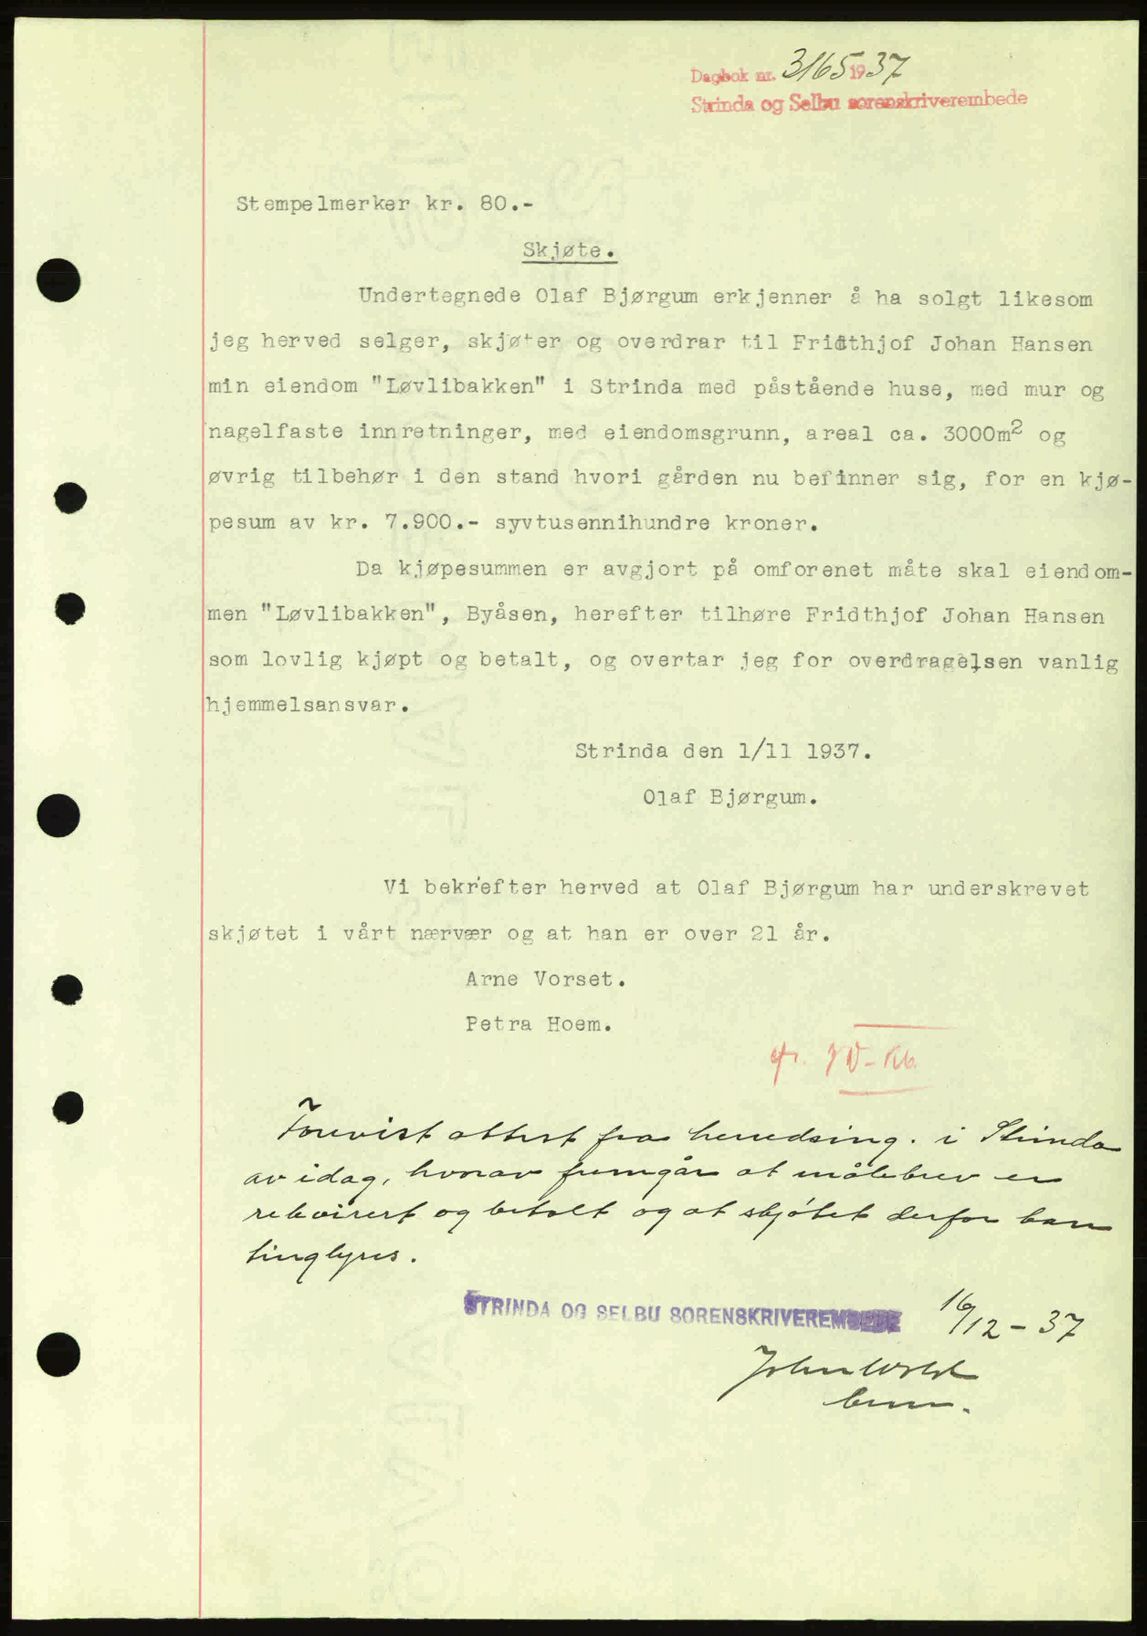 Dagbok nr. 3165 1937
Strinda og Selbu sorenskriverembede
Stempelmerker kr. 80.-
Skjøte.
Undertegnede Olaf Bjørgum erkjenner å ha solgt likesom
jeg herved selger, skjøter og overdrar til Fridthjof Johan Hansen
min eiendom "Løvlibakken" i Strinda med påstående huse, med mur og
nagelfaste innretninger, med eiendomsgrunn, areal ca. 3000m2 og
øvrig tilbehør i den stand hvori gården nu befinner sig, for en kjø-
pesum av kr. 7.900.- syvtusennihundre kroner.
Da kjøpesummen er avgjort på omforenet måte skal eiendom-
men "Løvlibakken", Byåsen, herefter tilhøre Fridthjof Johan Hansen
som lovlig kjøpt og betalt, og overtar jeg for overdragelsen vanlig
hjemmelsansvar.
Strinda den 1/11 1937.
Olaf Bjørgum.
Vi bekrefter herved at Olaf Bjørgum har underskrevet
skjøtet i vårt nærvær og at han er over 21 år.
Arne Vorset.
Petra Hoem.
Forevist attest fra herredsing. i Strinda
av idag, hvorav fremgår at målebrev er
rekvirert og betalt og at skjøtet derfor kan
tinglyses.
STRINDA OG SELBU SORENSKRIVEREMBEDE 16/12-37